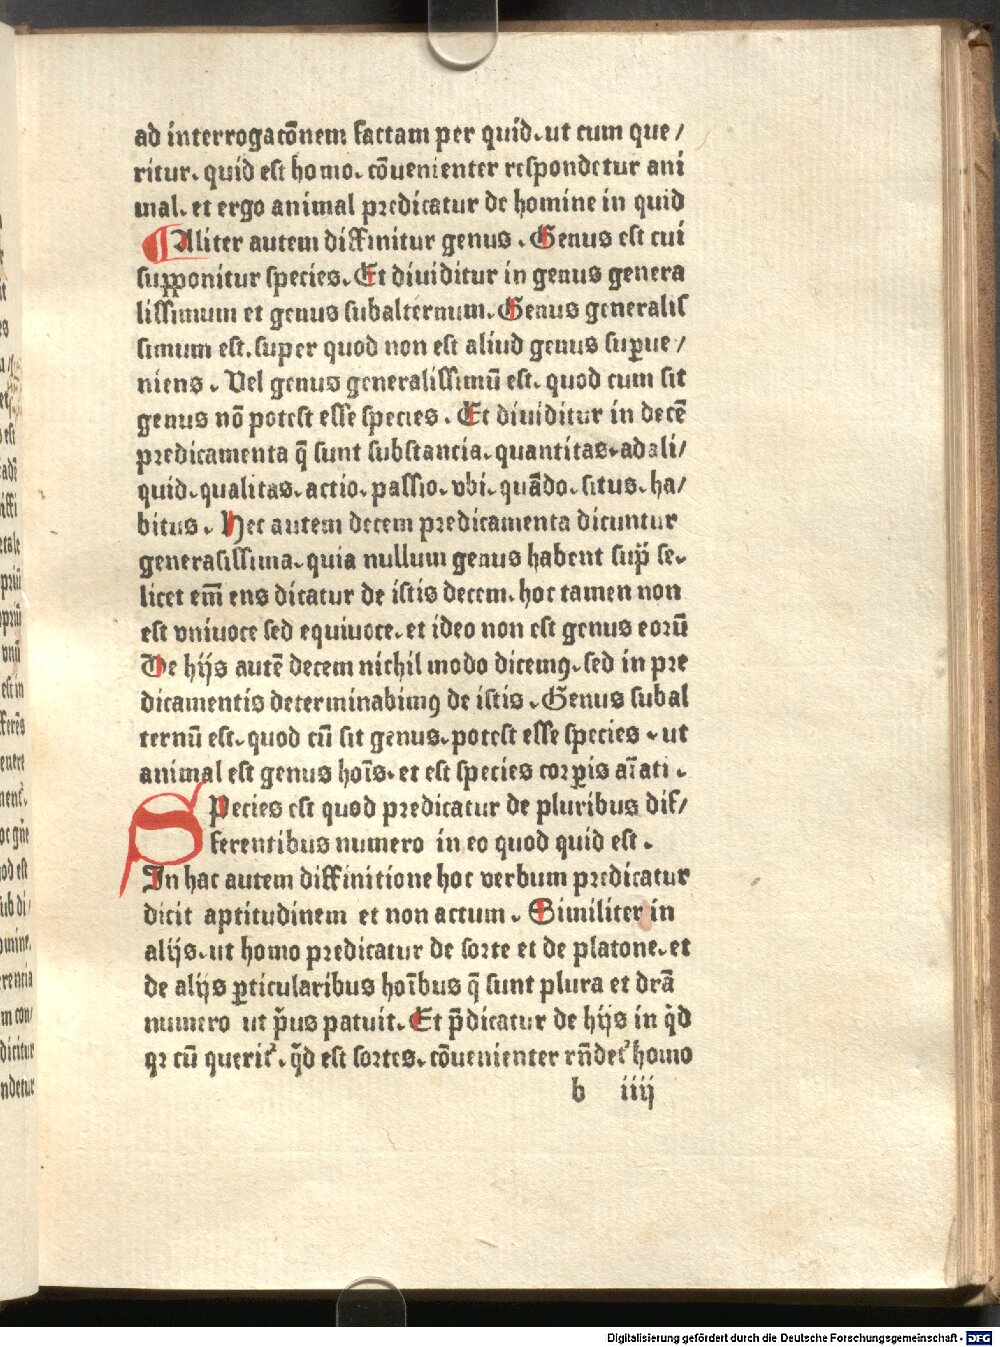 ad interrogacōnem factam per quid. ut cum que/
ritur. quid est homo. cōuenienter respondetur ani
mal. et ergo animal predicatur de homine in quid
¶ Aliter autem diffinitur genus. Genus est cui
supponitur species. Et diuiditur in genus genera
lissimum et genus subalternum. Genus generalis
simum est. super quod non est aliud genus suꝑue/
niens. Vel genus generalissimū est. quod cum sit
genus nō potest esse species. Et diuiditur in decē
predicamenta q̄ sunt substancia. quantitas. ad ali/
quid. qualitas. actio. passio. vbi. quādo. situs. ha/
bitus. Hec autem decem predicamenta dicuntur
generalissima. quia nullum genus habent sup̄ se.
licet em̄ ens dicatur de istis decem. hoc tamen non
est vniuoce sed equiuoce. et ideo non est genus eorū
De hijs autē decem nichil modo dicemꝰ. sed in pre
dicamentis determinabimꝰ de istis. Genus subal
ternū est. quod cū sit genus. potest esse species. ut
animal est genus hoīs. et est species corꝑis aīati.
SPecies est quod predicatur de pluribus dif/
ferentibus numero in eo quod quid est.
In hac autem diffinitione hoc verbum predicatur
dicit aptitudinem et non actum. Similiter in
alijs. ut homo predicatur de sorte et de platone. et
de alijs ꝑticularibus hoībus q̄ sunt plura et drā
numero ut p̄us patuit. Et p̄dicatur de hijs in q̇d
qꝛ cū querit᷑. q̇d est sortes. cōuenienter rn̄det᷑ homo
b iiij
Digitalisierung gefördert durch die Deutsche Forschungsgemeinschaft - DFG